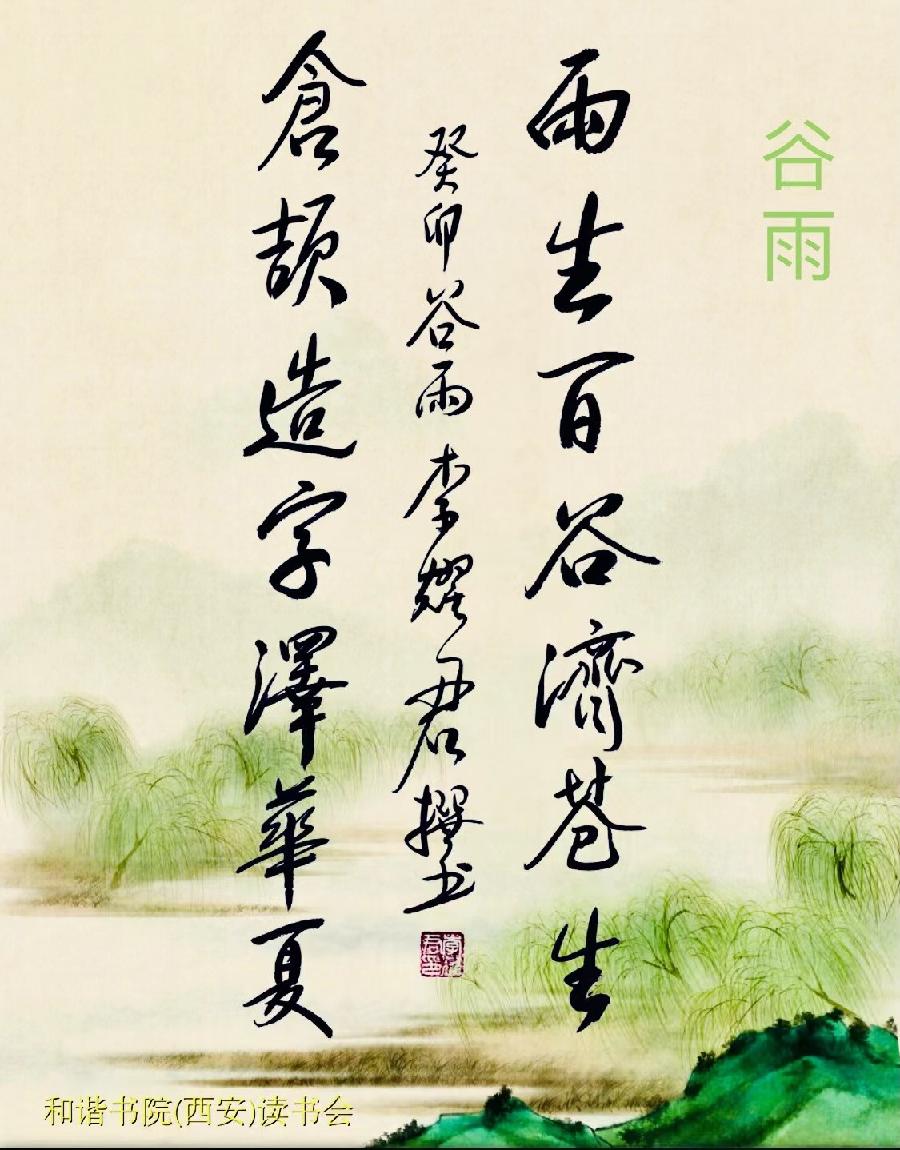 谷雨
雨生百谷濟蒼生
癸卯谷雨李耀君撰书
倉頡造字澤華夏
和谐书院(西安)读书会